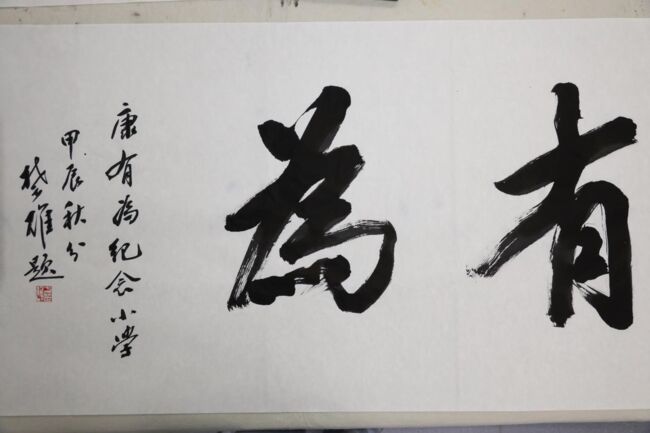 有為
康有為紀念小學
甲辰秋分
楚雄題